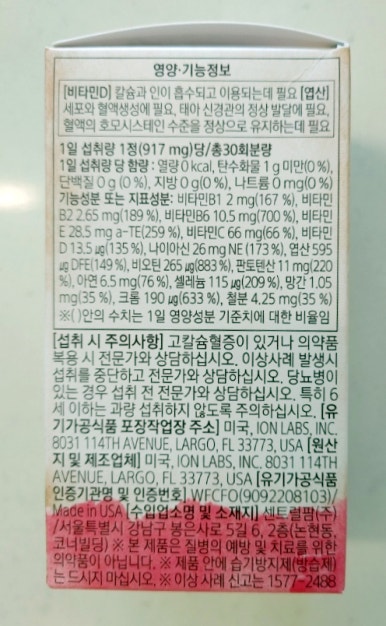 영양·기능정보
[비타민D] 칼슘과 인이 흡수되고 이용되는데 필요 [엽산]
세포와 혈액생성에 필요, 태아 신경관의 정상 발달에 필요,
혈액의 호모시스테인 수준을 정상으로 유지하는데 필요
1일 섭취량 1정(917 mg)당/총30회분량
1일 섭취량 당 함량 : 열량 0 kcal, 탄수화물 1 g 미만(0 %),
단백질 0 g (0 %), 지방 0 g(0 %), 나트륨 0 mg(0 %)
기능성분 또는 지표성분: 비타민B1 2 mg(167 %), 비타민
B2 2.65 mg(189 %), 비타민B6 10.5 mg(700 %), 비타민
E 28.5 mg a-TE(259 %), 비타민C 66 mg(66 %), 비타민
D 13.5 ㎍(135 %), 나이아신 26 mg NE (173 %), 엽산 595
㎍ DFE(149 %), 비오틴 265 ㎍(883 %), 판토텐산 11 mg(220
%), 아연 6.5 mg(76 %), 셀레늄 115 ㎍(209 %), 망간 1.05
mg(35 %), 크롬 190 ㎍(633 %), 철분 4.25 mg(35 %)
※( )안의 수치는 1일 영양성분 기준치에 대한 비율임
[섭취 시 주의사항] 고칼슘혈증이 있거나 의약품
복용 시 전문가와 상담하십시오. 이상사례 발생시
섭취를 중단하고 전문가와 상담하십시오. 당뇨병이
있는 경우 섭취 전 전문가와 상담하십시오. 특히 6
세 이하는 과량 섭취하지 않도록 주의하십시오. [유
기가공식품 포장작업장 주소] 미국, ION LABS, INC.
8031 114TH AVENUE, LARGO, FL 33773, USA [원산
지 및 제조업체] 미국, ION LABS, INC. 8031 114TH
AVENUE, LARGO, FL 33773, USA [유기가공식품
인증기관명 및 인증번호] WFCFO(9092208103)/
Made in USA [수입업소명 및 소재지] 센트럴팜(주)
/서울특별시 강남구 봉은사로 5길 6, 2층(논현동,
코너빌딩) ※ 본 제품은 질병의 예방 및 치료를 위한
의약품이 아닙니다. ※ 제품 안에 습기방지제(방습제)
는 드시지 마십시오. ※ 이상 사례 신고는 1577-2488